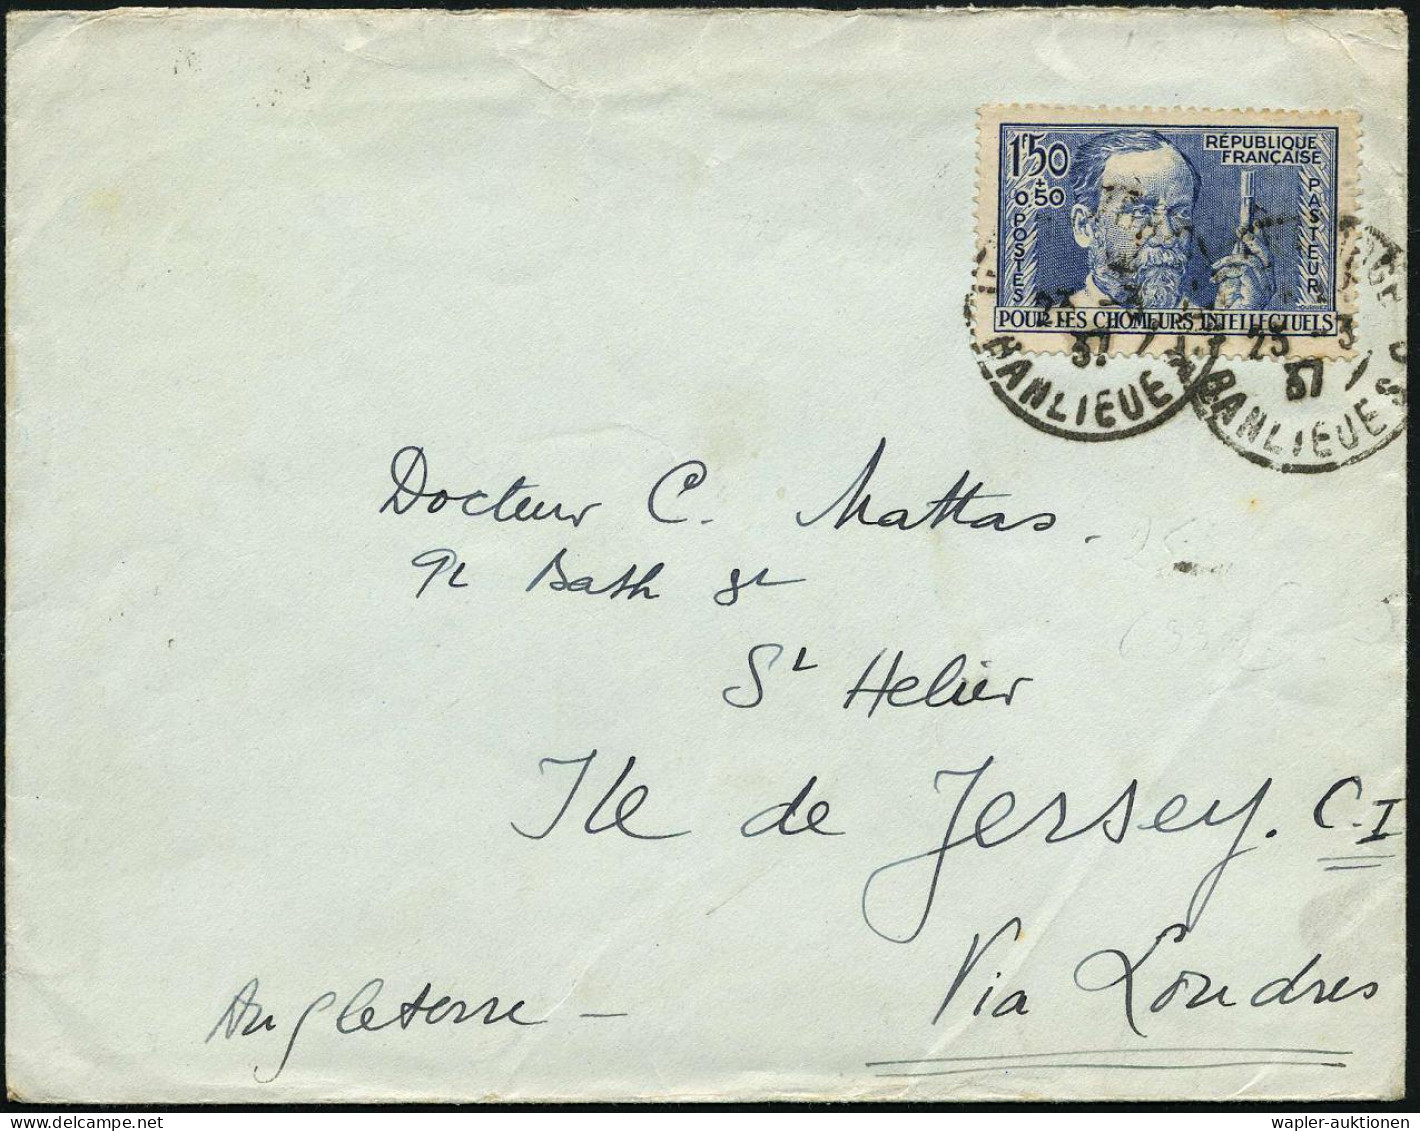 1f50
+
0,50
POSTES
RÉPUBLIQUE
FRANÇAISE
PASTEUR
POUR LES CHOMEURS INTELLECTUELS
23 -3
37
BANLIEUE
23 -3
37
BANLIEUE
Docteur C. Mattas.
Bath St
St Helier
Ile de Jersey. C.I
Via Londres
Angleterre —
wapler-auktionen